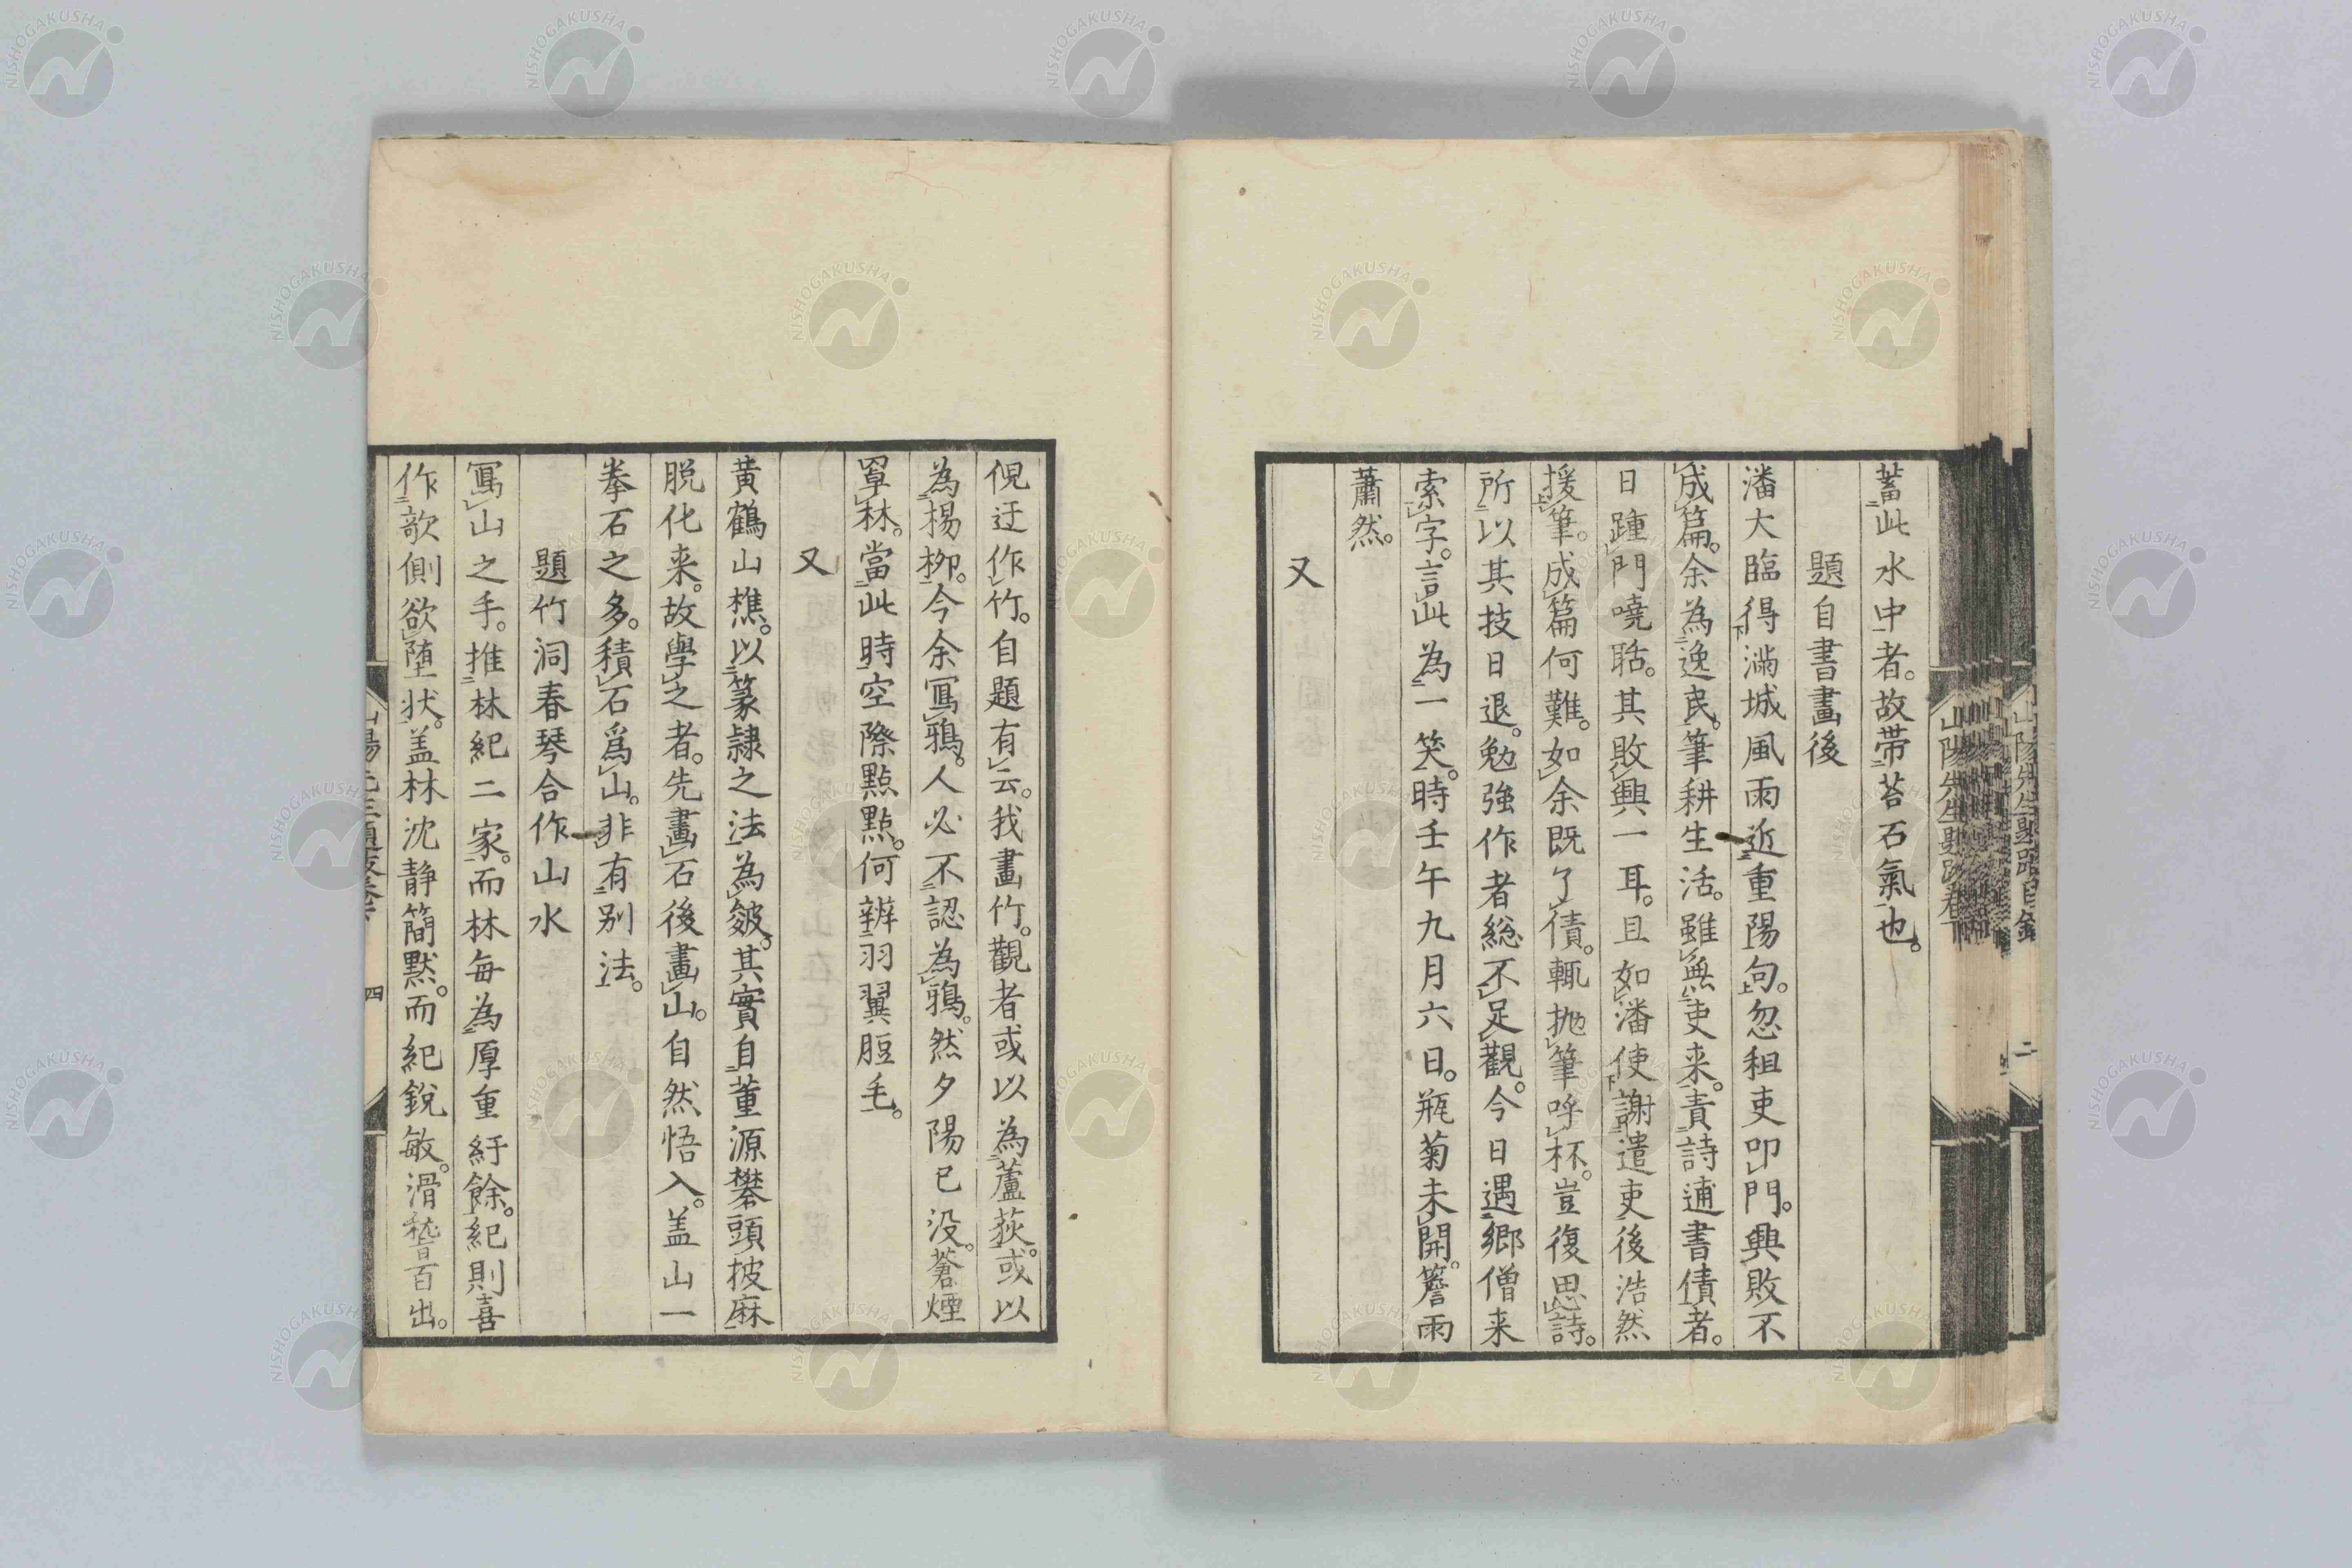 蓄此水中者。故帯苔石氣也。
題自書畫後
潘大臨得滿城風雨近重陽句。忽租吏叩門。興敗不
成篇。余為逸民。筆耕生活。雖無吏来。責詩逋書債者。
日踵門嘵聒。其敗興一耳。且如潘使謝遣吏後浩然
援筆。成篇何難。如余既了債。輒抛筆呼杯。豈復思詩。
所以其技日退。勉強作者総不足觀。今日遇郷僧来
索字。言此為一笑。時壬午九月六日。瓶菊未開。簷雨
蕭然。
又
倪迂作竹。自題有云。我畫竹。觀者或以為蘆荻。或以
為楊柳。今余寫鴉。人必不認為鴉。然夕陽已没。蒼煙
罩林。當此時空際點點。何辨羽翼脰毛。
又
黄鶴山樵。以篆隷之法為皴。其實自董源礬頭披麻
脱化来。故學之者。先畫石後畫山。自然悟入。盖山一
拳石之多。積石爲山。非有別法。
題竹洞春琴合作山水
寫山之手。推林紀二家。而林毎為厚重紆餘。紀則喜
作欹側欲堕状。盖林沈静簡默。而紀鋭敏。滑稽百出。
山陽先生題跋卷下
山陽先生題跋目録
二
四
NISHOGAKUSHA